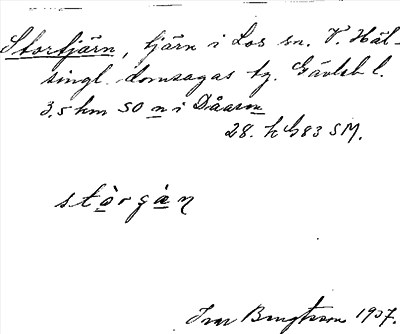 Stortjärn, tjärn i Los sn. V. Häl-
singl. domsagas tg. Gävleb l.
3,5 km SO n i Dåasen
28. h G83 SM.
stòrgàn
Ivar Bengtsson 1937.